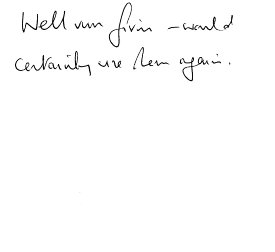 Well run firm - would
certainly use them again.